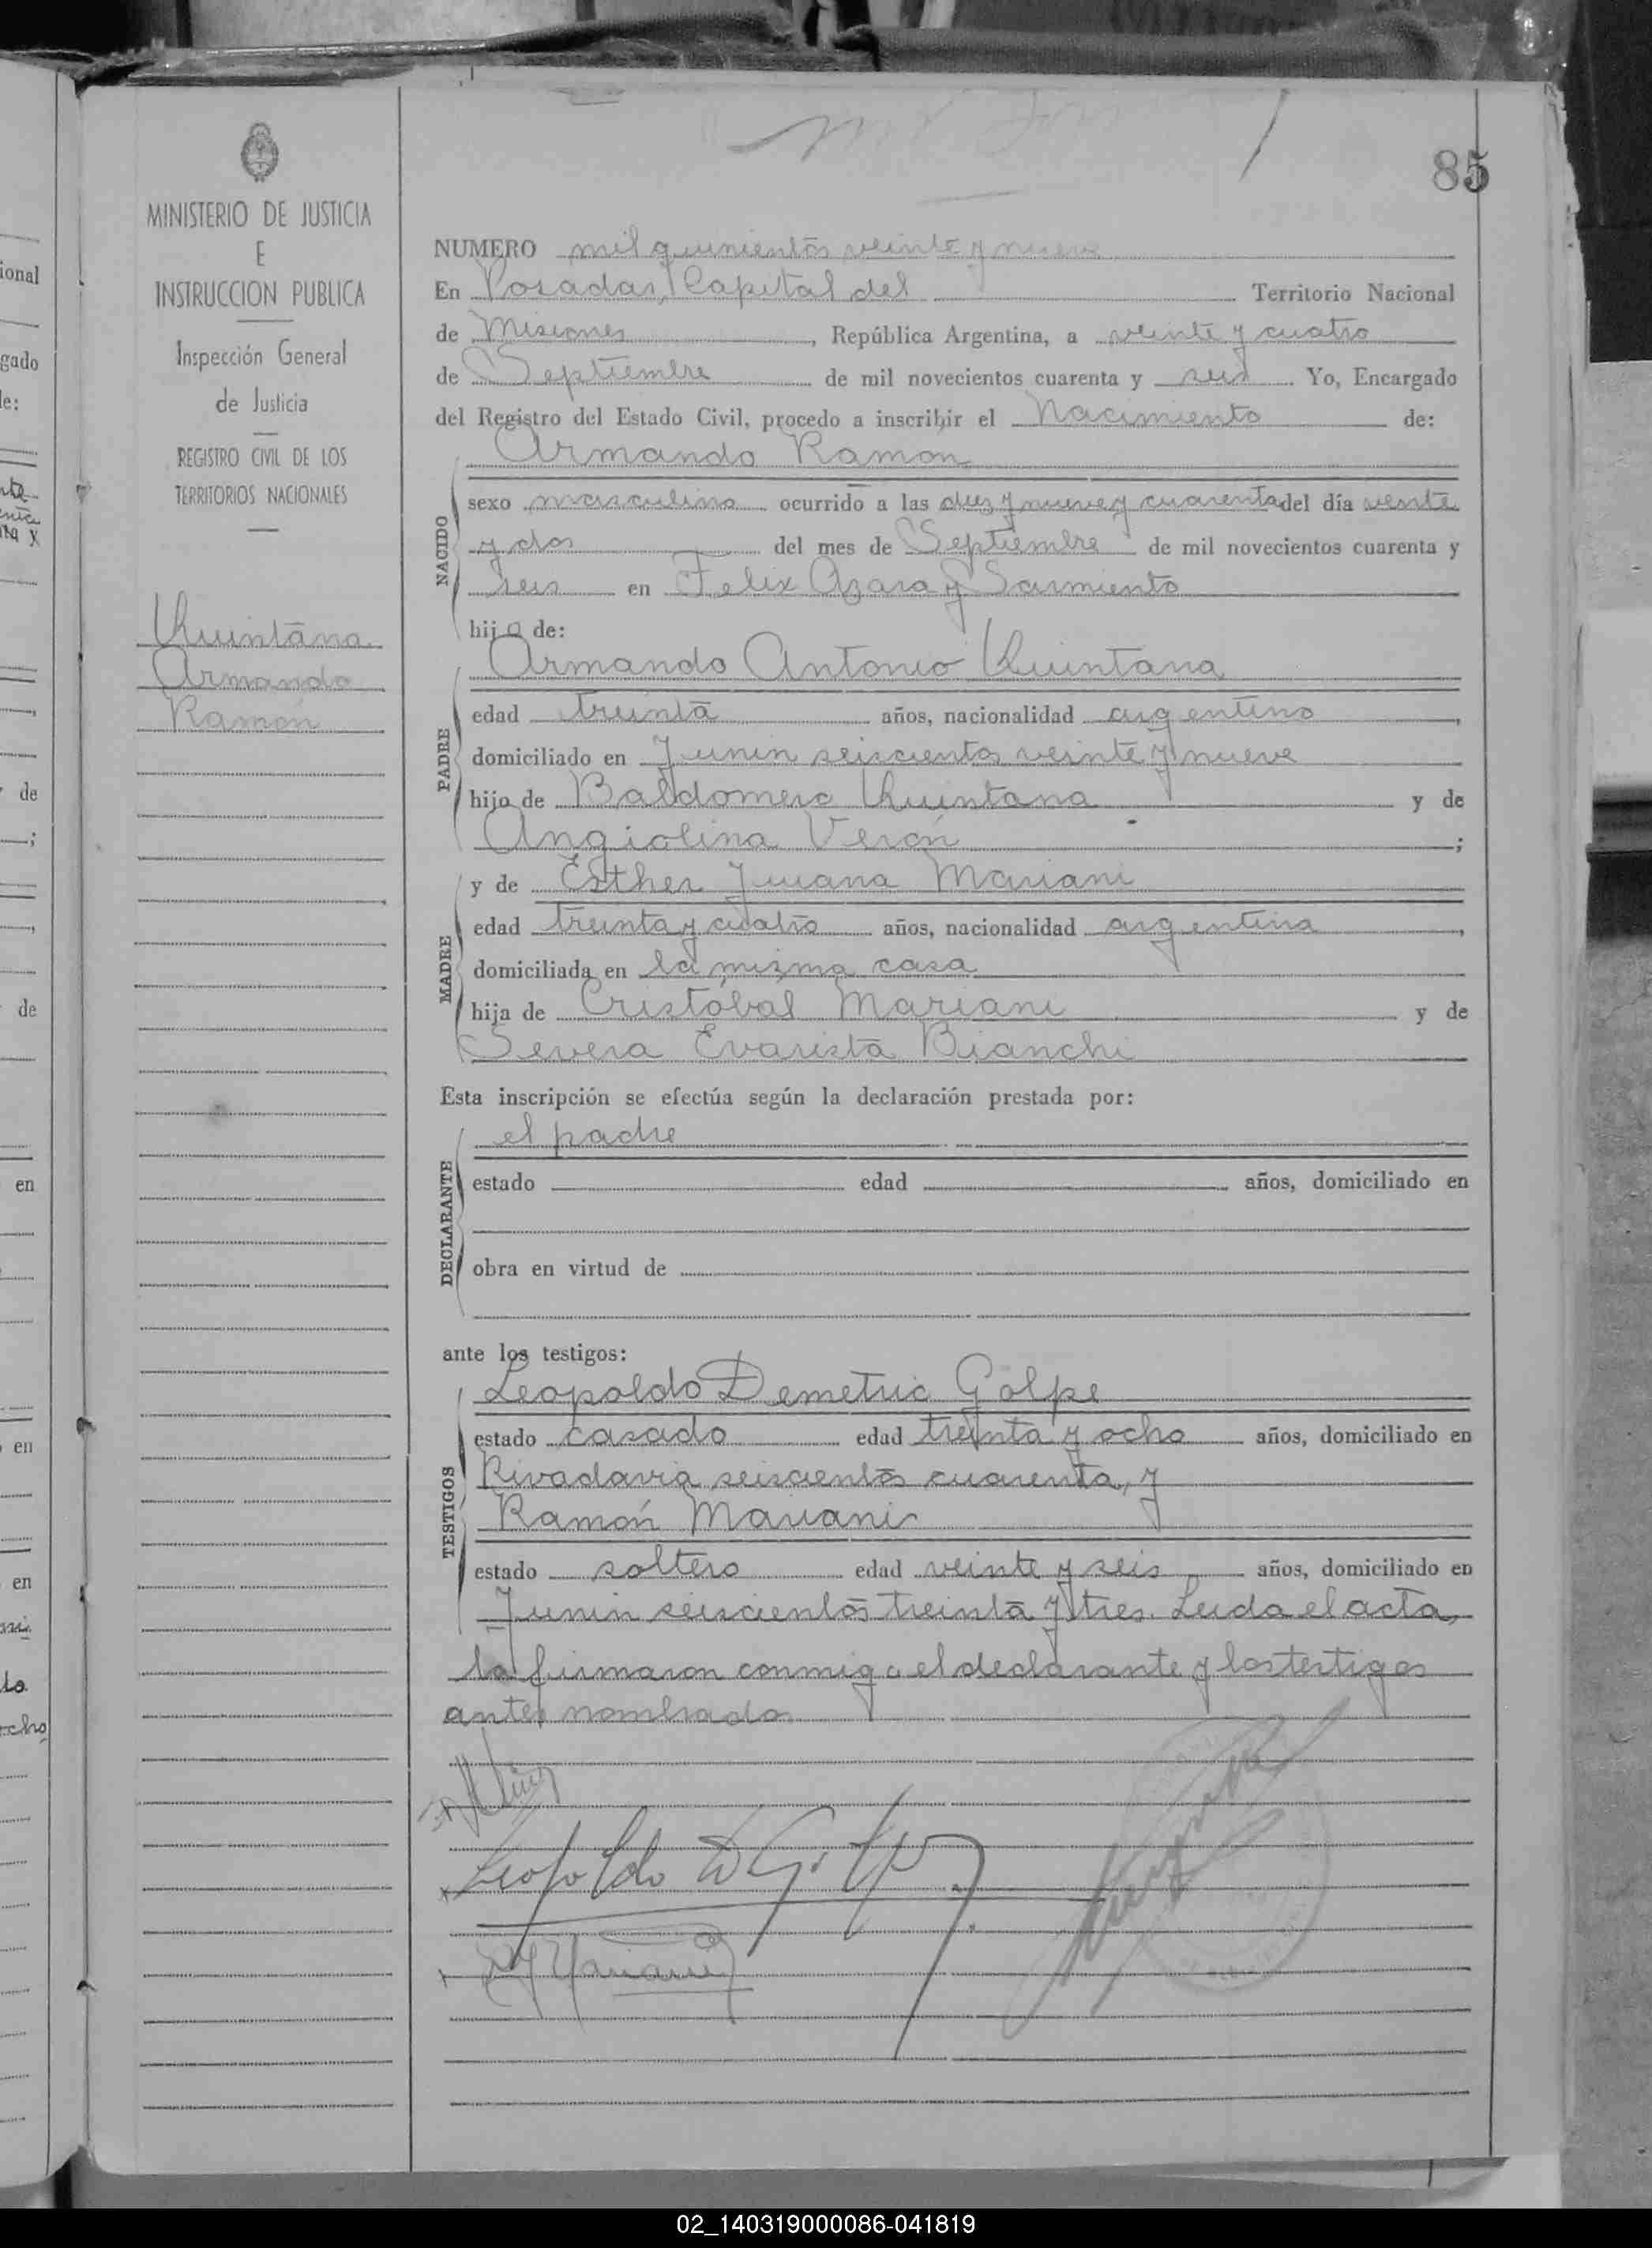 85
MINISTERIO DE JUSTICIA
E
INSTRUCCION PUBLICA
Inspección General
de Justicia
REGISTRO CIVIL DE LOS
TERRITORIOS NACIONALES
Quintana
Armando
Ramón
NUMERO mil quinientos veinte y nueve
En Posadas, Capital del Territorio Nacional
de Misiones, República Argentina, a veinte y cuatro
de Septiembre de mil novecientos cuarenta y seis Yo, Encargado
del Registro del Estado Civil, procedo a inscribir el Nacimiento de:
Armando Ramon
NACIDO
sexo masculino ocurrido a las diez y nueve y cuarenta del día veinte
y dos del mes de Septiembre de mil novecientos cuarenta y
seis en Felix Azara y Sarmiento
hijo de:
PADRE
Armando Antonio Quintana
edad treinta años, nacionalidad argentino,
domiciliado en Junin seiscientos veinte y nueve
hijo de Baldomero Quintana y de
Angiolina Verón;
MADRE
y de Esther Juana Mariani
edad treinta y cuatro años, nacionalidad argentina,
domiciliada en la misma casa
hija de Cristóbal Mariani y de
Severa Evarista Bianchi
Esta inscripción se efectúa según la declaración prestada por:
DECLARANTE
el padre
estado edad años, domiciliado en
obra en virtud de
ante los testigos:
TESTIGOS
Leopoldo Demetrio Golpe
estado casado edad treinta y ocho años, domiciliado en
Rivadavia seiscientos cuarenta, y
Ramón Mariani
estado soltero edad veinte y seis años, domiciliado en
Junin seiscientos treinta y tres. Leida el acta,
la firmaron conmigo el declarante y los testigos
antes nombrados
Leopoldo D Golpe
R J Mariani
ional
gado
le:
de
de
en
en
en
02_140319000086-041819